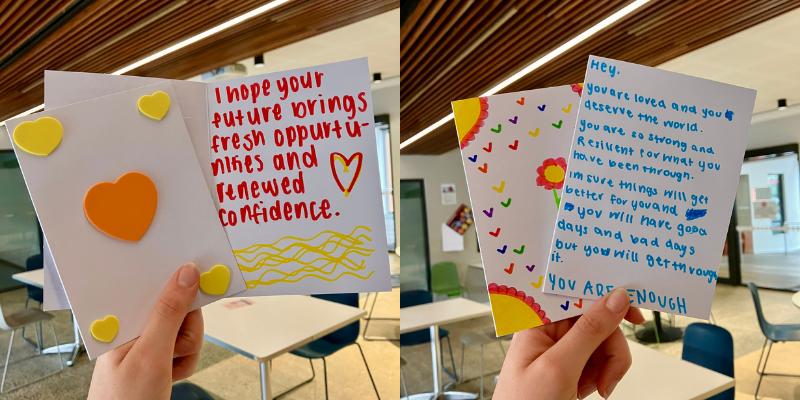 I hope your
future brings
fresh oppurtu-
nities and
renewed
confidence.
Hey,
you are loved and you
deserve the world.
you are so strong and
Resilient for what you
have been through.
im sure things will get
better for you and
you will have good
days and bad days
but you will get through
it.
YOU ARE ENOUGH